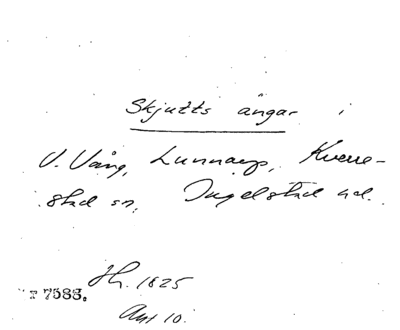 Skjutts ängar i
V. Vång, Lunnarp, Kverre-
stad sn, Ingelstad hd.
Jh. 1825
7583.
Akt 10.